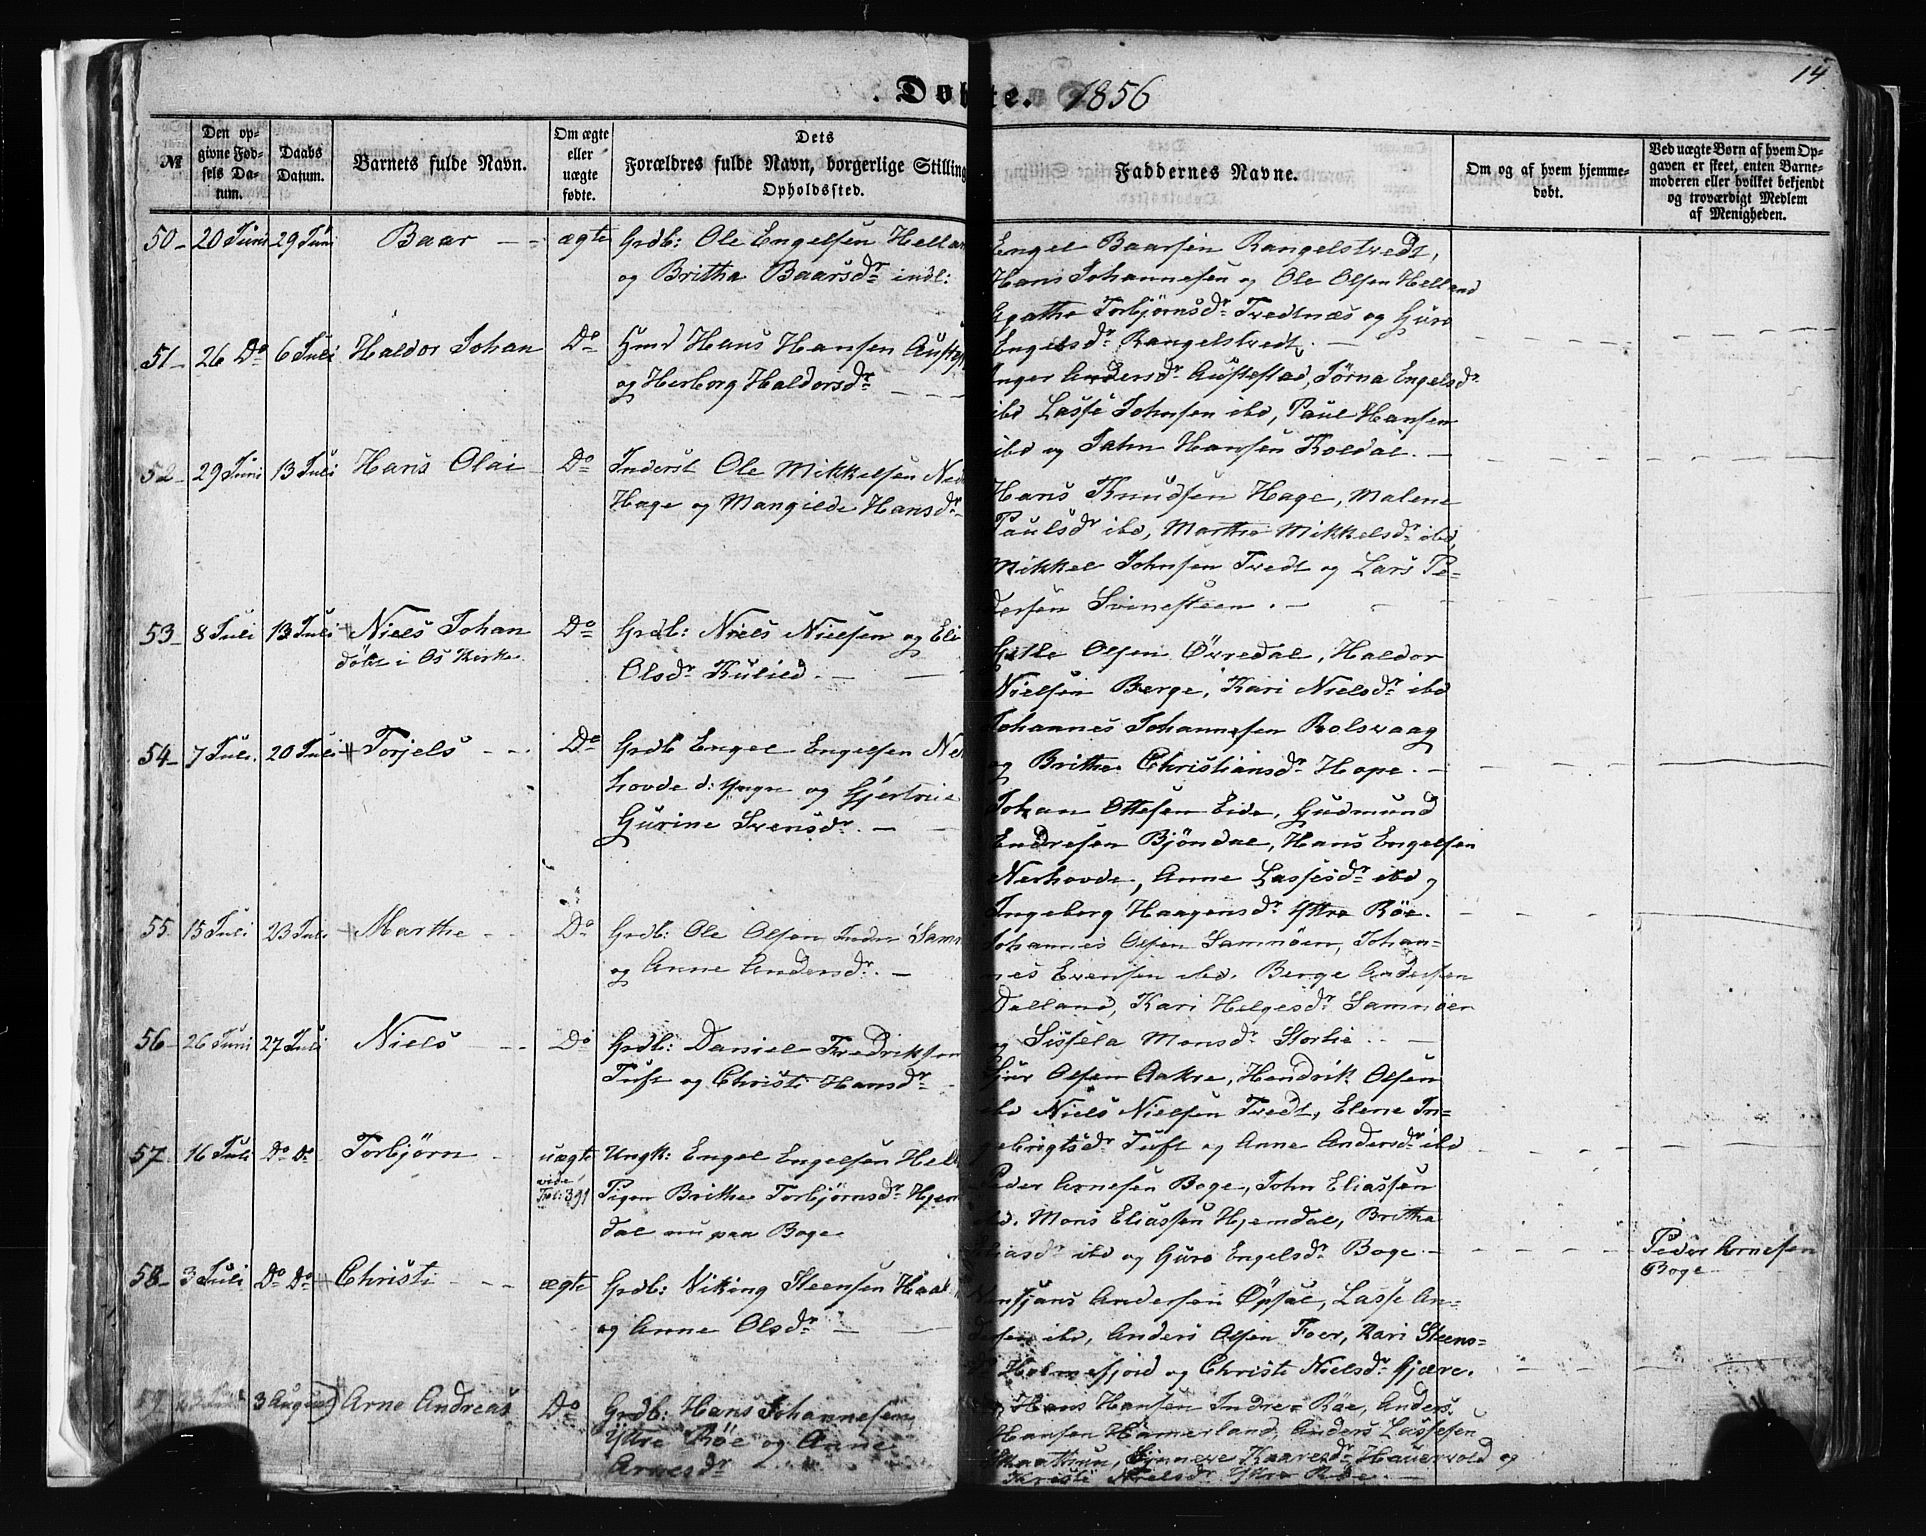 14
Døbte. 1856
№
Den op-
givne Fød-
sels Da-
tum.
Daabs
Datum.
Barnets fulde Navn.
Om ægte
eller
uægte
fødte.
Dets
Forældres fulde Navn, borgerlige Stilling
Opholdssted.
Faddernes Navne.
Om og af hvem hjemme-
døbt.
Ved uægte Børn af hvem Op-
gaven er skeet, enten Barne-
moderen eller hvilket bekjendt
og troværdigt Medlem
af Menigheden.
50 20 Juni 29 Juni Baar ægte Grdb: Ole Engelsen Hellan
og Britha Baarsdr indl:
Engel Baarsen Rangelstvedt,
Hans Johannesen og Ole Olsen Helland
Agatha Torbjørnsdr Tvedtnæs og Guro
Engelsdr Rangelstvedt.
51 26 Do 6 Juli Haldor Johan Do Hmd Hans Hansen
og Herborg Haldorsdr
Inger Andersdr Austestad, Jørna Engelsdr
ibd Lasse Johnsen ibd, Paul Hansen
ibd og John Hansen Koldal.
52 29 Juni 13 Juli Hans Olai Do Inderst Ole Mikkelsen Ned
Hage og Mangilde Hansdr
Hans Knudsen Hage, Malene
Paulsdr ibd, Marthe Mikkelsdr ibd,
Mikkel Johnsen Tvedt og Lars Pe-
dersen Svinesteen.
53 8 Juli 13 Juli Niels Johan Do Grdb: Niels Nielsen og Eli
døbt i Os Kirke
Olsdr Kulied.
Olsen Øvredal, Haldor
Nielsen Berge, Kari Nielsdr ibd
Johannes Johannesen Rolsvaag
og Britha Christiansdr Hope.
54 7 Juli 20 Juli Torjels Do Grdb Engel Engelsen Ner
hovde d: Yngre og Gjertrue
Gurine Svensdr.
Johan Ottesen Eide, Gudmund
Endresen Bjöndal, Hans Engelsen
Nerhovde, Anne Lassesdr ibd og
Ingeborg Haagensdr Yttre Röe.
55. 15 Juli 23 Juli Marthe Do Grdb: Ole Olsen Indre Samn
og Anne Andersdr.
Johannes Olsen Samnöen, Johan-
nes Evensen ibd. Berge Andersen
Dalland, Kari Helgesdr Samnöen
og Sissela Monsdr Storlie
56 26 Juni 27 Juli Niels Do Grdb: Daniel Fredriksen
Tuft og Christi Hansdr
Gjur Olsen Aakre, Hendrik Olsen
ibd Niels Nielsen Tvedt, Elene In-
gebrigtsdr Tuft og Anne Andersdr ibd
57. 16 Juli Do Do Torbjörn uægte Ungk: Engel Engelsen Hell
vide
Fol: 391
Pigen Britha Torbjörnsdr Hjem
dal nu paa Boge
Peder Arnesen Boge, John Eliassen
ibd. Mons Eliassen Hjemdal, Britha
Eliasdr ibd og Guro Engelsdr Boge.
Peder Arnesen
Boge
58 3 Juli Do Do Christi ægte Grdb: Viking Steensen Haal
og Anne Olsdr
Andersen Øpsal, Lasse An-
dersen ibd, Anders Olsen Foer, Kari Steens-
dr Holmefjord og Christi Nielsdr Gjære.
59 23 Juli 3 August Arne Andreas Do Grdb: Hans Johannesen
Yttre Röe og Anne
Arnesdr
Hans Hansen Indre Röe, Anders
Hansen Hamerland, Anders Lassesen
Skaathun, Synneve Kaaresdr Hauervold og
Kristi Nielsdr Yttre Röe.